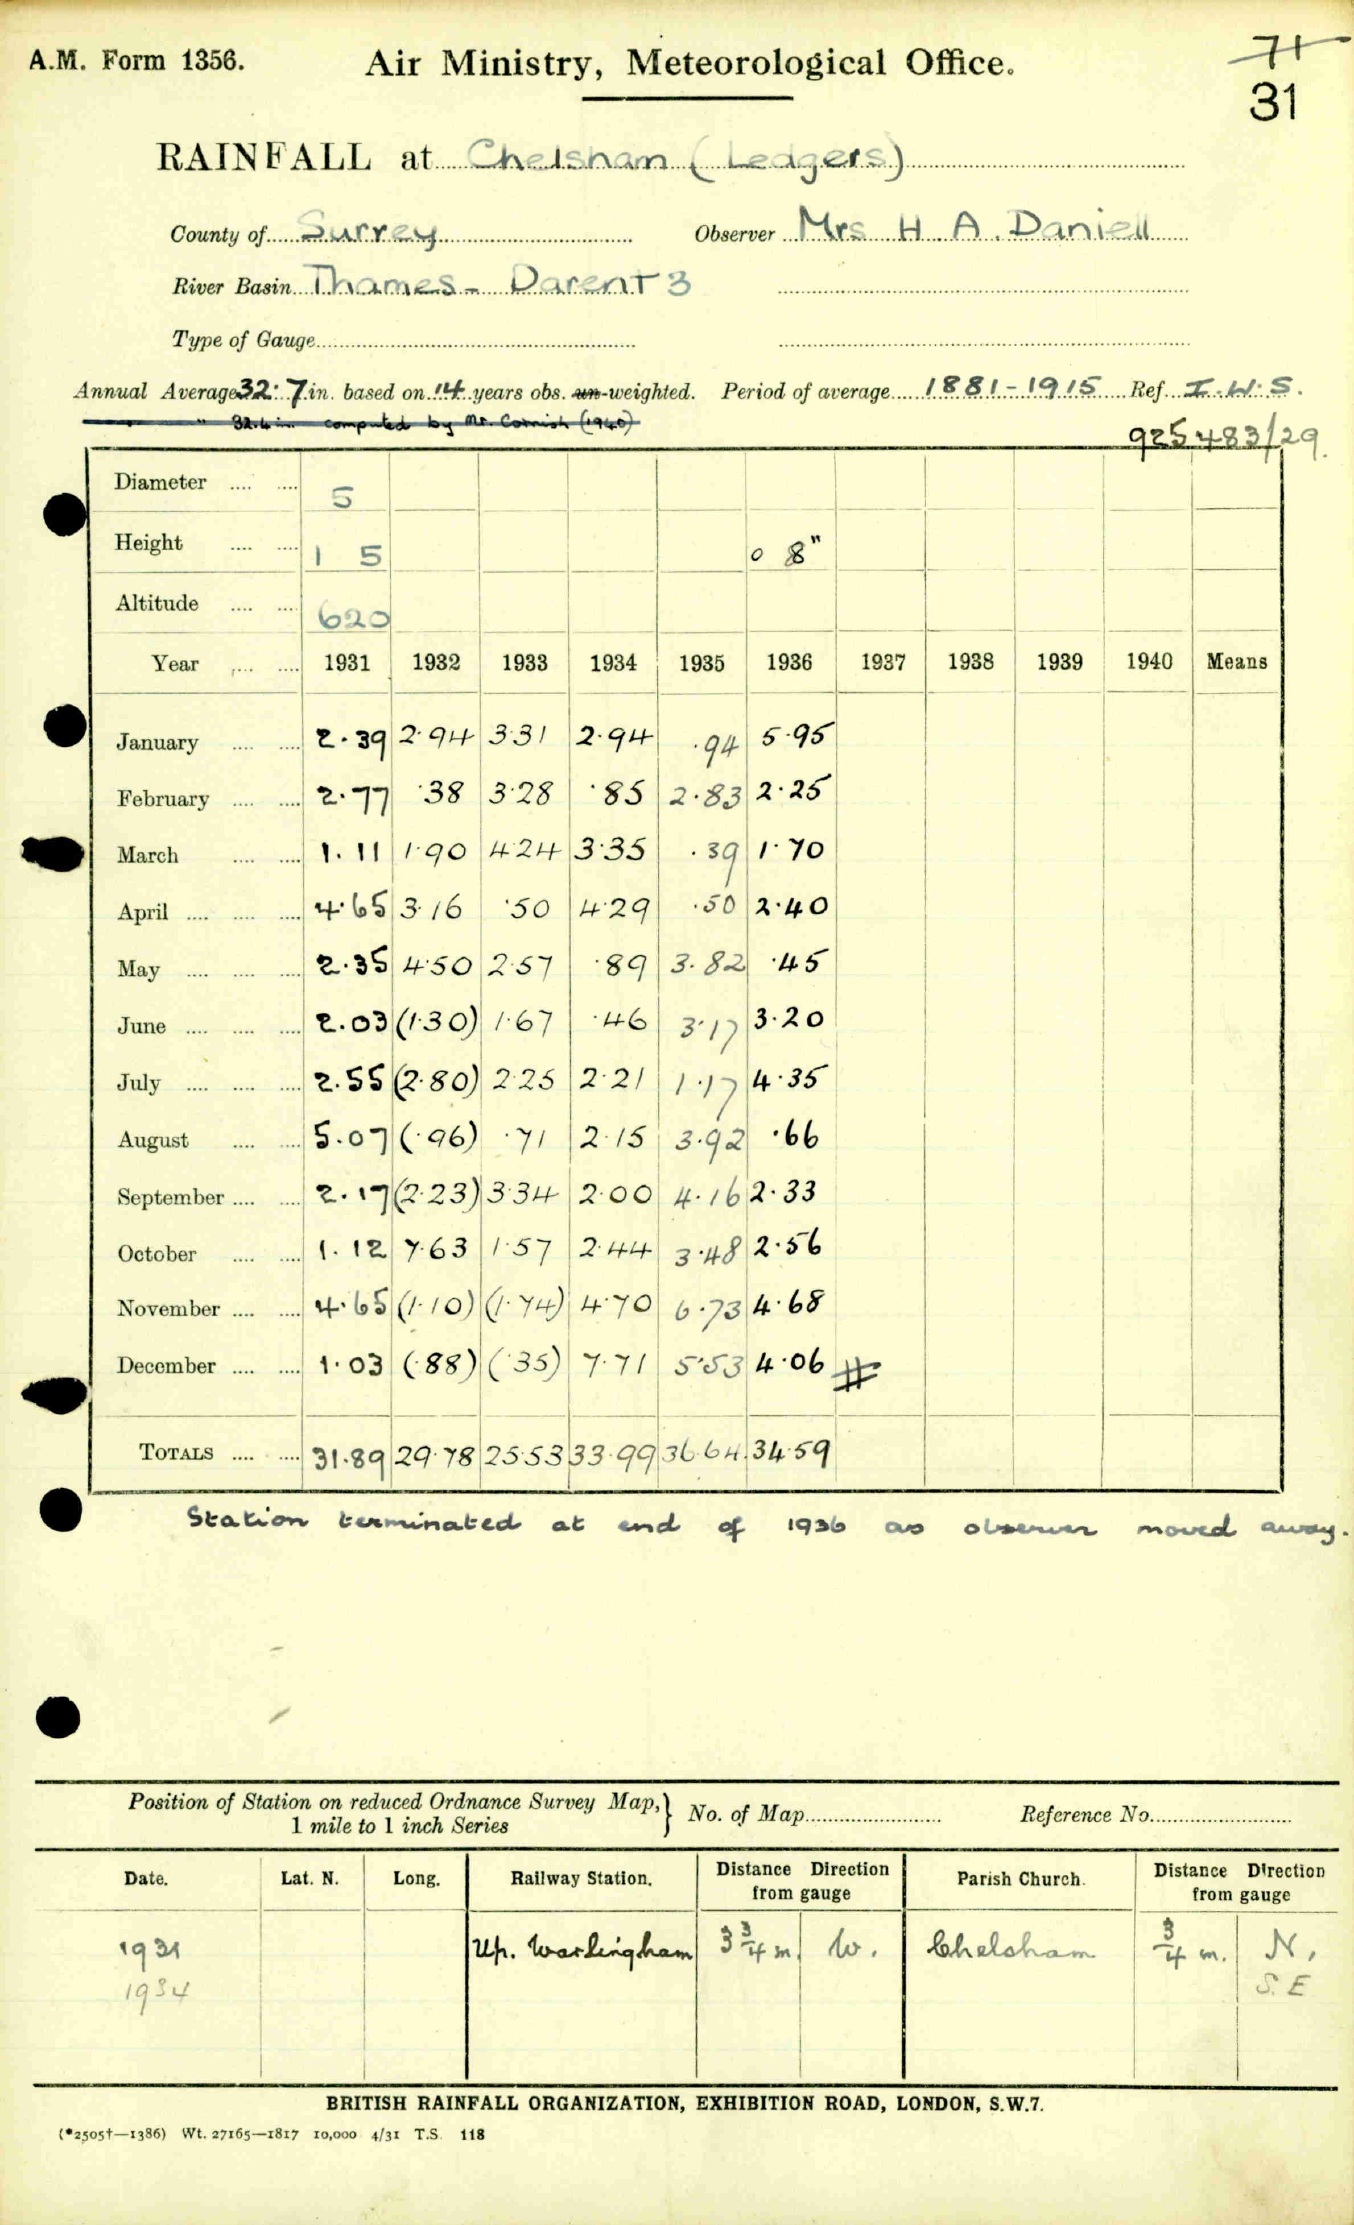 A.M. Form 1356.
Air Ministry, Meteorological Office.
71
31
RAINFALL at Chelsham (Ledgers)
County of Surrey Observer Mrs H. A. Daniell
River Basin Thames - Darent 3
Type of Gauge
Annual Average 32.7 in. based on 14 years obs. un-weighted. Period of average 1881-1915 Ref. I.W.S.
" 32.4 in. computed by Mr. Cornish (1940)
925483/29.
Diameter 5
Height 1 5 0 8"
Altitude 620
Year 1931 1932 1933 1934 1935 1936 1937 1938 1939 1940 Means
January 2.39 2.94 3.31 2.94 .94 5.95
February 2.77 .38 3.28 .85 2.83 2.25
March 1.11 1.90 4.24 3.35 .39 1.70
April 4.65 3.16 .50 4.29 .50 2.40
May 2.35 4.50 2.57 .89 3.82 .45
June 2.03 (1.30) 1.67 .46 3.17 3.20
July 2.55 (2.80) 2.25 2.21 1.17 4.35
August 5.07 (.96) .71 2.15 3.92 .66
September 2.17 (2.23) 3.34 2.00 4.16 2.33
October 1.12 7.63 1.57 2.44 3.48 2.56
November 4.65 (1.10) (1.74) 4.70 6.73 4.68
December 1.03 (.88) (.35) 7.71 5.53 4.06
TOTALS 31.89 29.78 25.53 33.99 36.64 34.59
Station terminated at end of 1936 as observer moved away.
Position of Station on reduced Ordnance Survey Map,} No. of Map Reference No.
1 mile to 1 inch Series
Date. Lat. N. Long. Railway Station. Distance Direction from gauge Parish Church. Distance Direction from gauge
1931 Up. Warlingham 3 3/4 m. W. Chelsham 3/4 m. N.
1934 S.E
BRITISH RAINFALL ORGANIZATION, EXHIBITION ROAD, LONDON, S.W.7.
(*2505†—1386) Wt. 27165—1817 10,000 4/31 T.S. 118